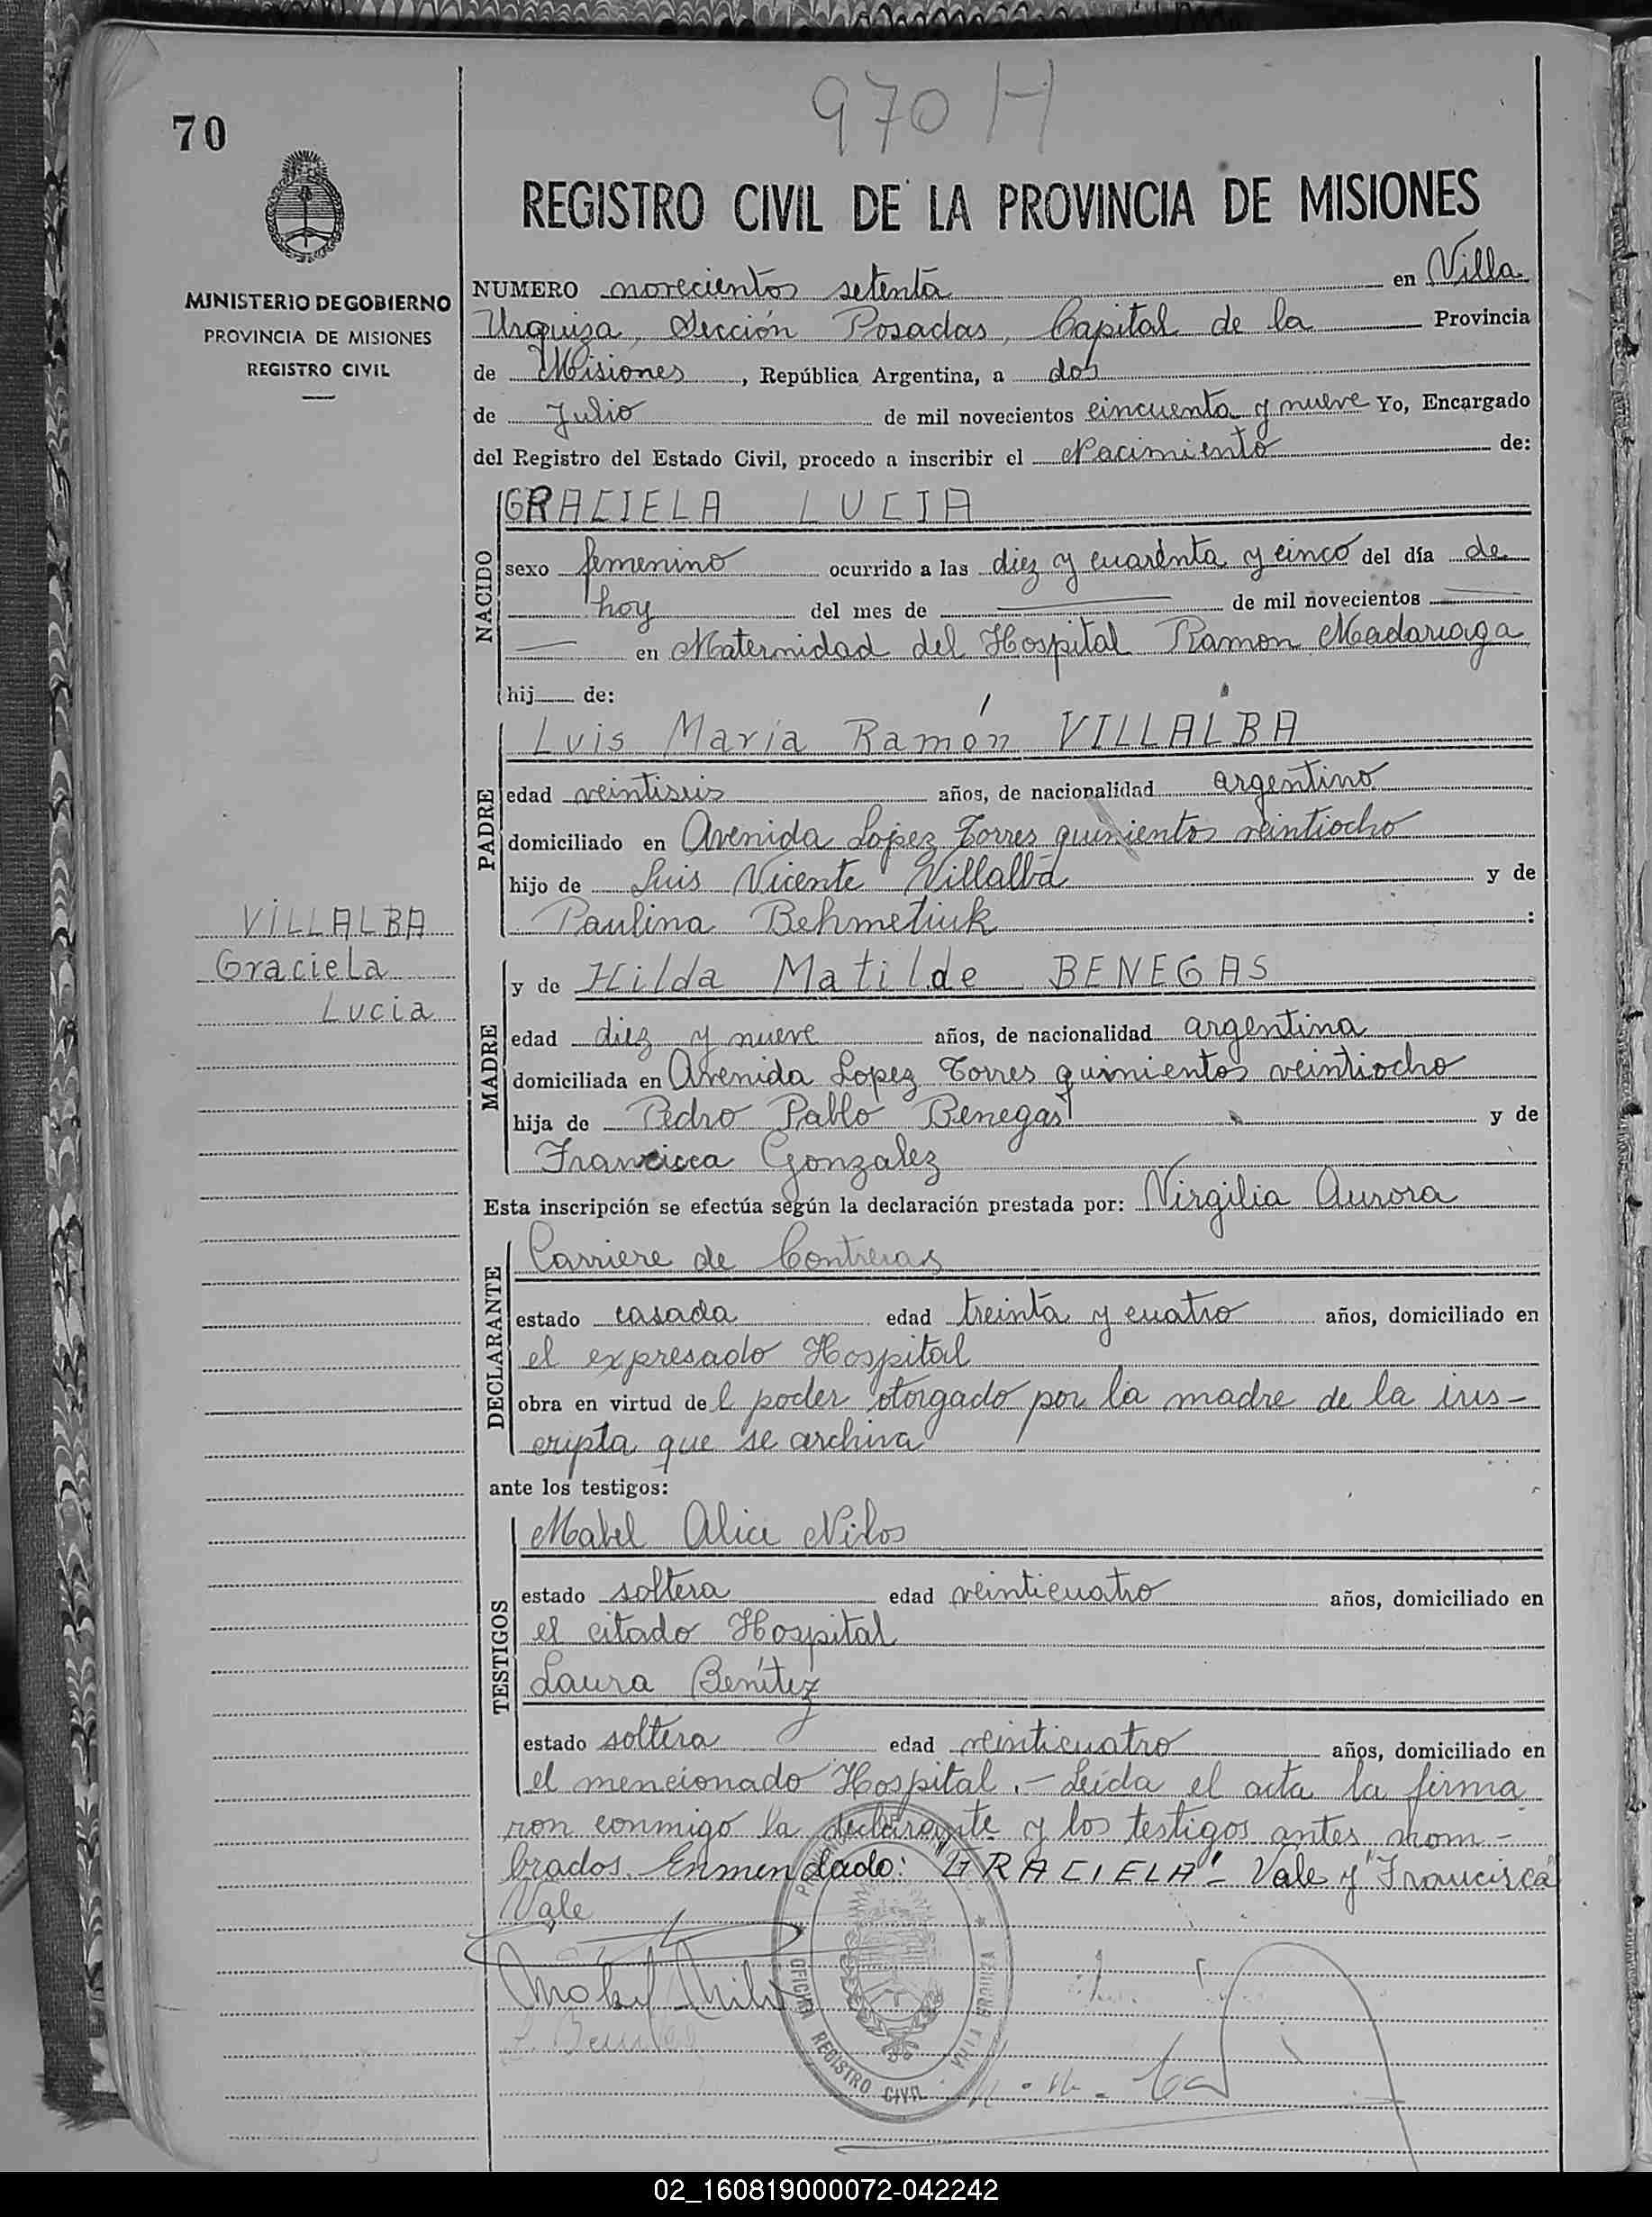 970 H
70
REGISTRO CIVIL DE LA PROVINCIA DE MISIONES
MINISTERIO DE GOBIERNO
PROVINCIA DE MISIONES
REGISTRO CIVIL
NUMERO novecientos setenta en Villa
Urquiza, Sección Posadas, Capital de la Provincia
de Misiones, República Argentina, a dos
de Julio de mil novecientos cincuenta y nueve Yo, Encargado
del Registro del Estado Civil, procedo a inscribir el Nacimiento de:
NACIDO
GRACIELA LUCIA
sexo femenino ocurrido a las diez y cuarenta y cinco del día de
hoy del mes de — de mil novecientos —
— en Maternidad del Hospital Ramon Madariaga
hij de:
PADRE
Luis María Ramón VILLALBA
edad veintiseis años, de nacionalidad argentino
domiciliado en Avenida Lopez Torres quinientos veintiocho
hijo de Luis Vicente Villalba y de
Paulina Behmetiuk :
VILLALBA
Graciela
Lucia
MADRE
y de Hilda Matilde BENEGAS
edad diez y nueve años, de nacionalidad argentina
domiciliada en Avenida Lopez Torres quinientos veintiocho
hija de Pedro Pablo Benegas y de
Francisca Gonzalez
Esta inscripción se efectúa según la declaración prestada por: Virgilia Aurora
DECLARANTE
Carriere de Contreras
estado casada edad treinta y cuatro años, domiciliado en
el expresado Hospital
obra en virtud del poder otorgado por la madre de la ins-
cripta que se archiva
ante los testigos:
TESTIGOS
Mabel Alice Nilos
estado soltera edad veinticuatro años, domiciliado en
el citado Hospital
Laura Benítez
estado soltera edad veinticuatro años, domiciliado en
el mencionado Hospital.- Leída el acta la firma
ron conmigo la declarante y los testigos antes nom-
brados. Enmendado: "GRACIELA" - Vale y "Francisca"
Vale
OFICINA REGISTRO CIVIL
VILLA URQUIZA
02_160819000072-042242